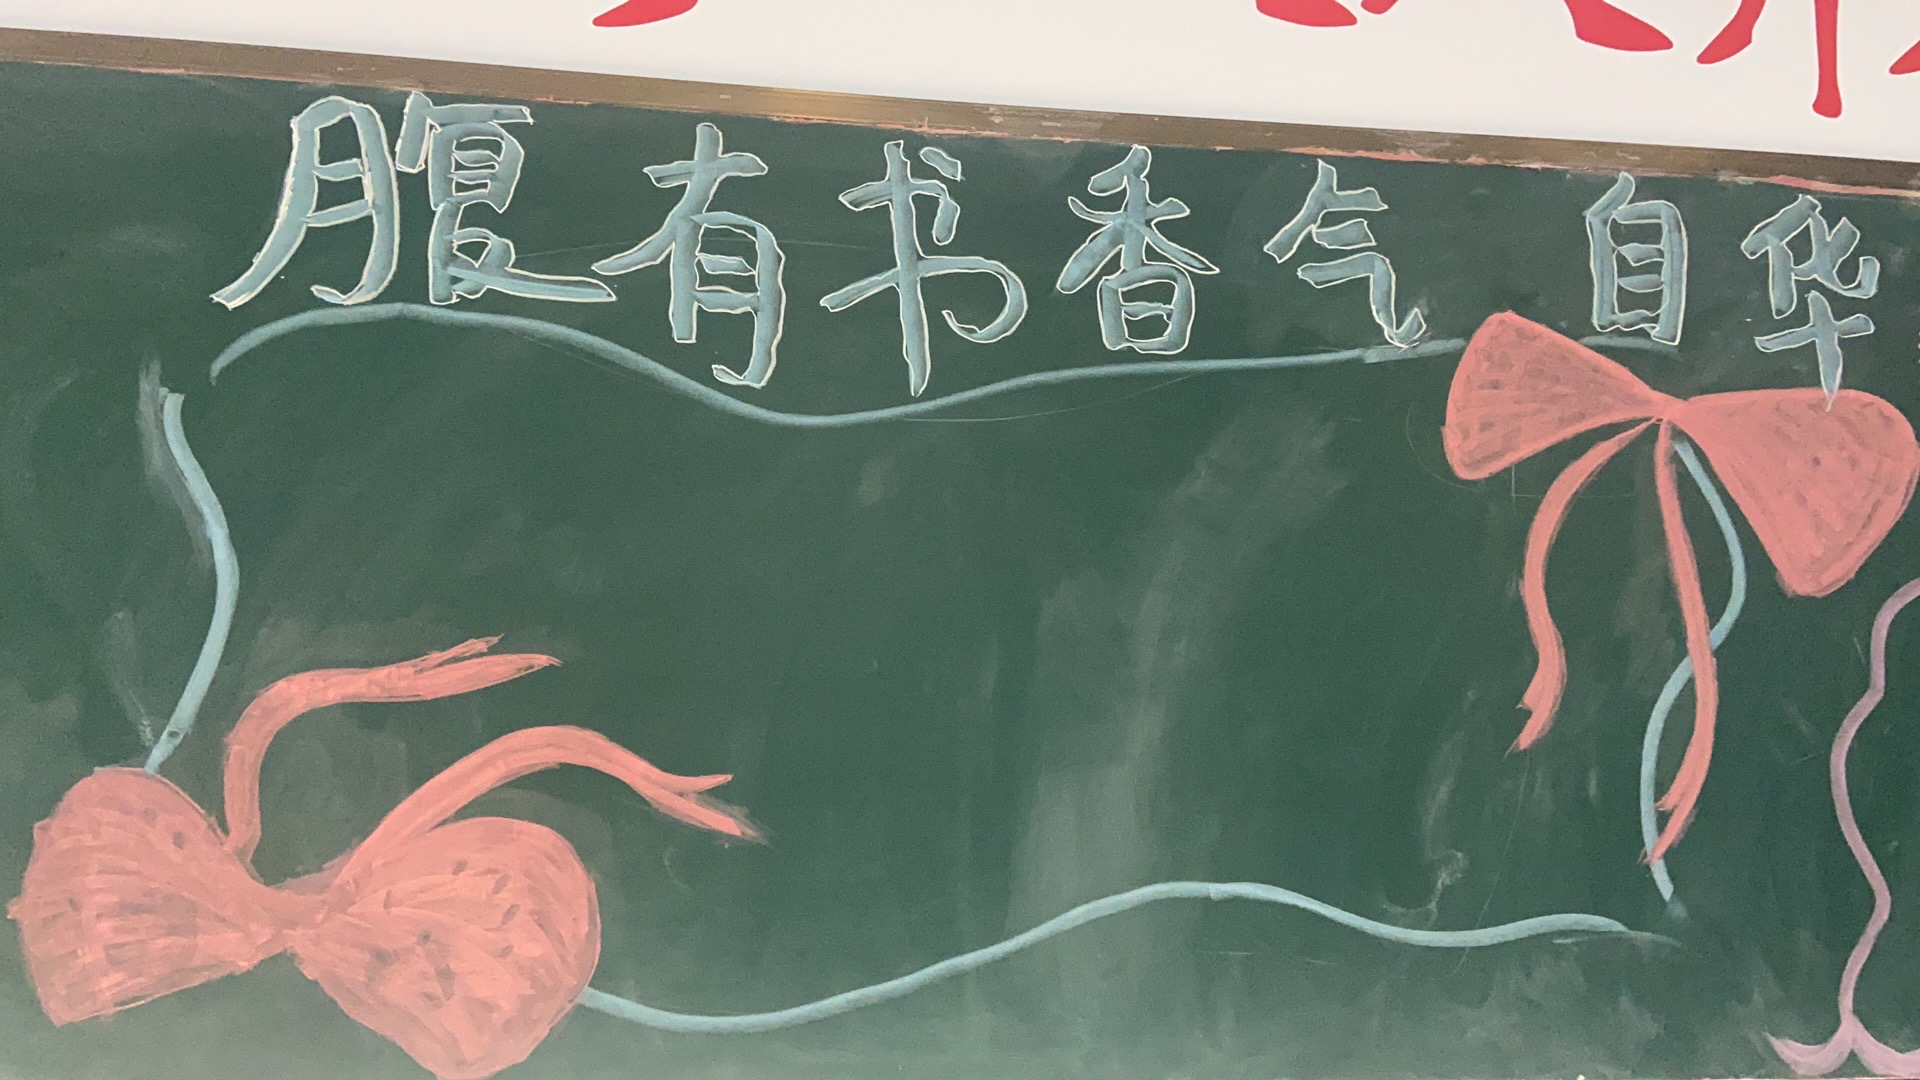 腹有书香气 自华